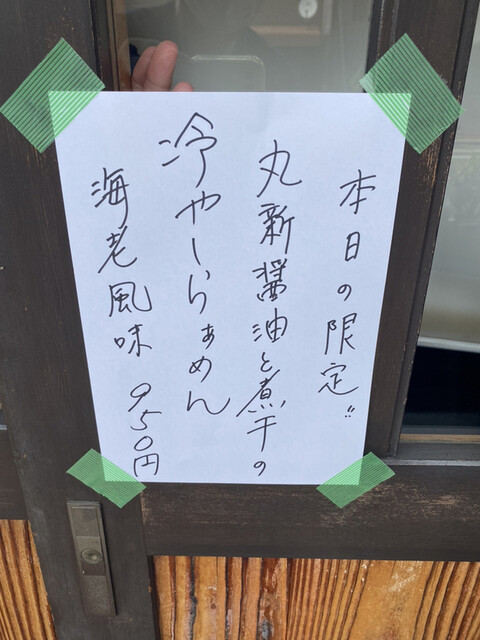 本日の限定!!
丸新醤油と煮干の
冷やしらぁめん
海老風味 950円